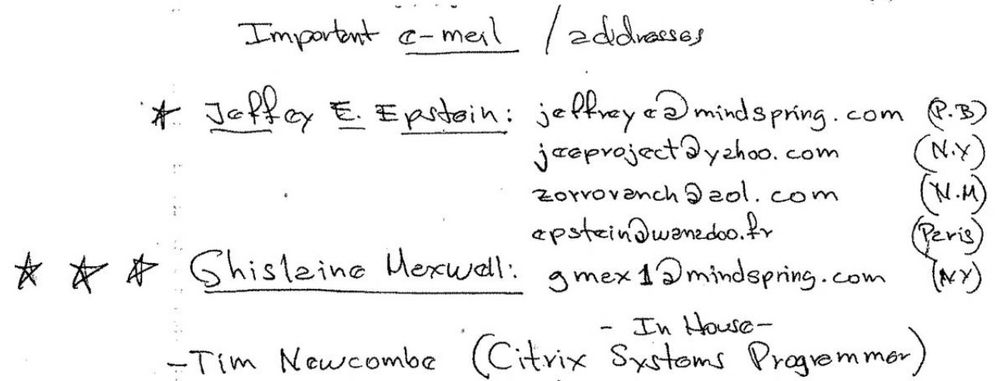 Important e-mail / addresses
★ Jeffey E. Epstein: jeffreye@mindspring.com (P.B)
jeeproject@yahoo.com (N.Y)
zorroranch@aol.com (N.M)
epstein@wanadoo.fr (Paris)
★ ★ ★ Ghislaine Maxwell: gmax1@mindspring.com (N.Y)
- In House -
- Tim Newcombe (Citrix Systems Programmer)